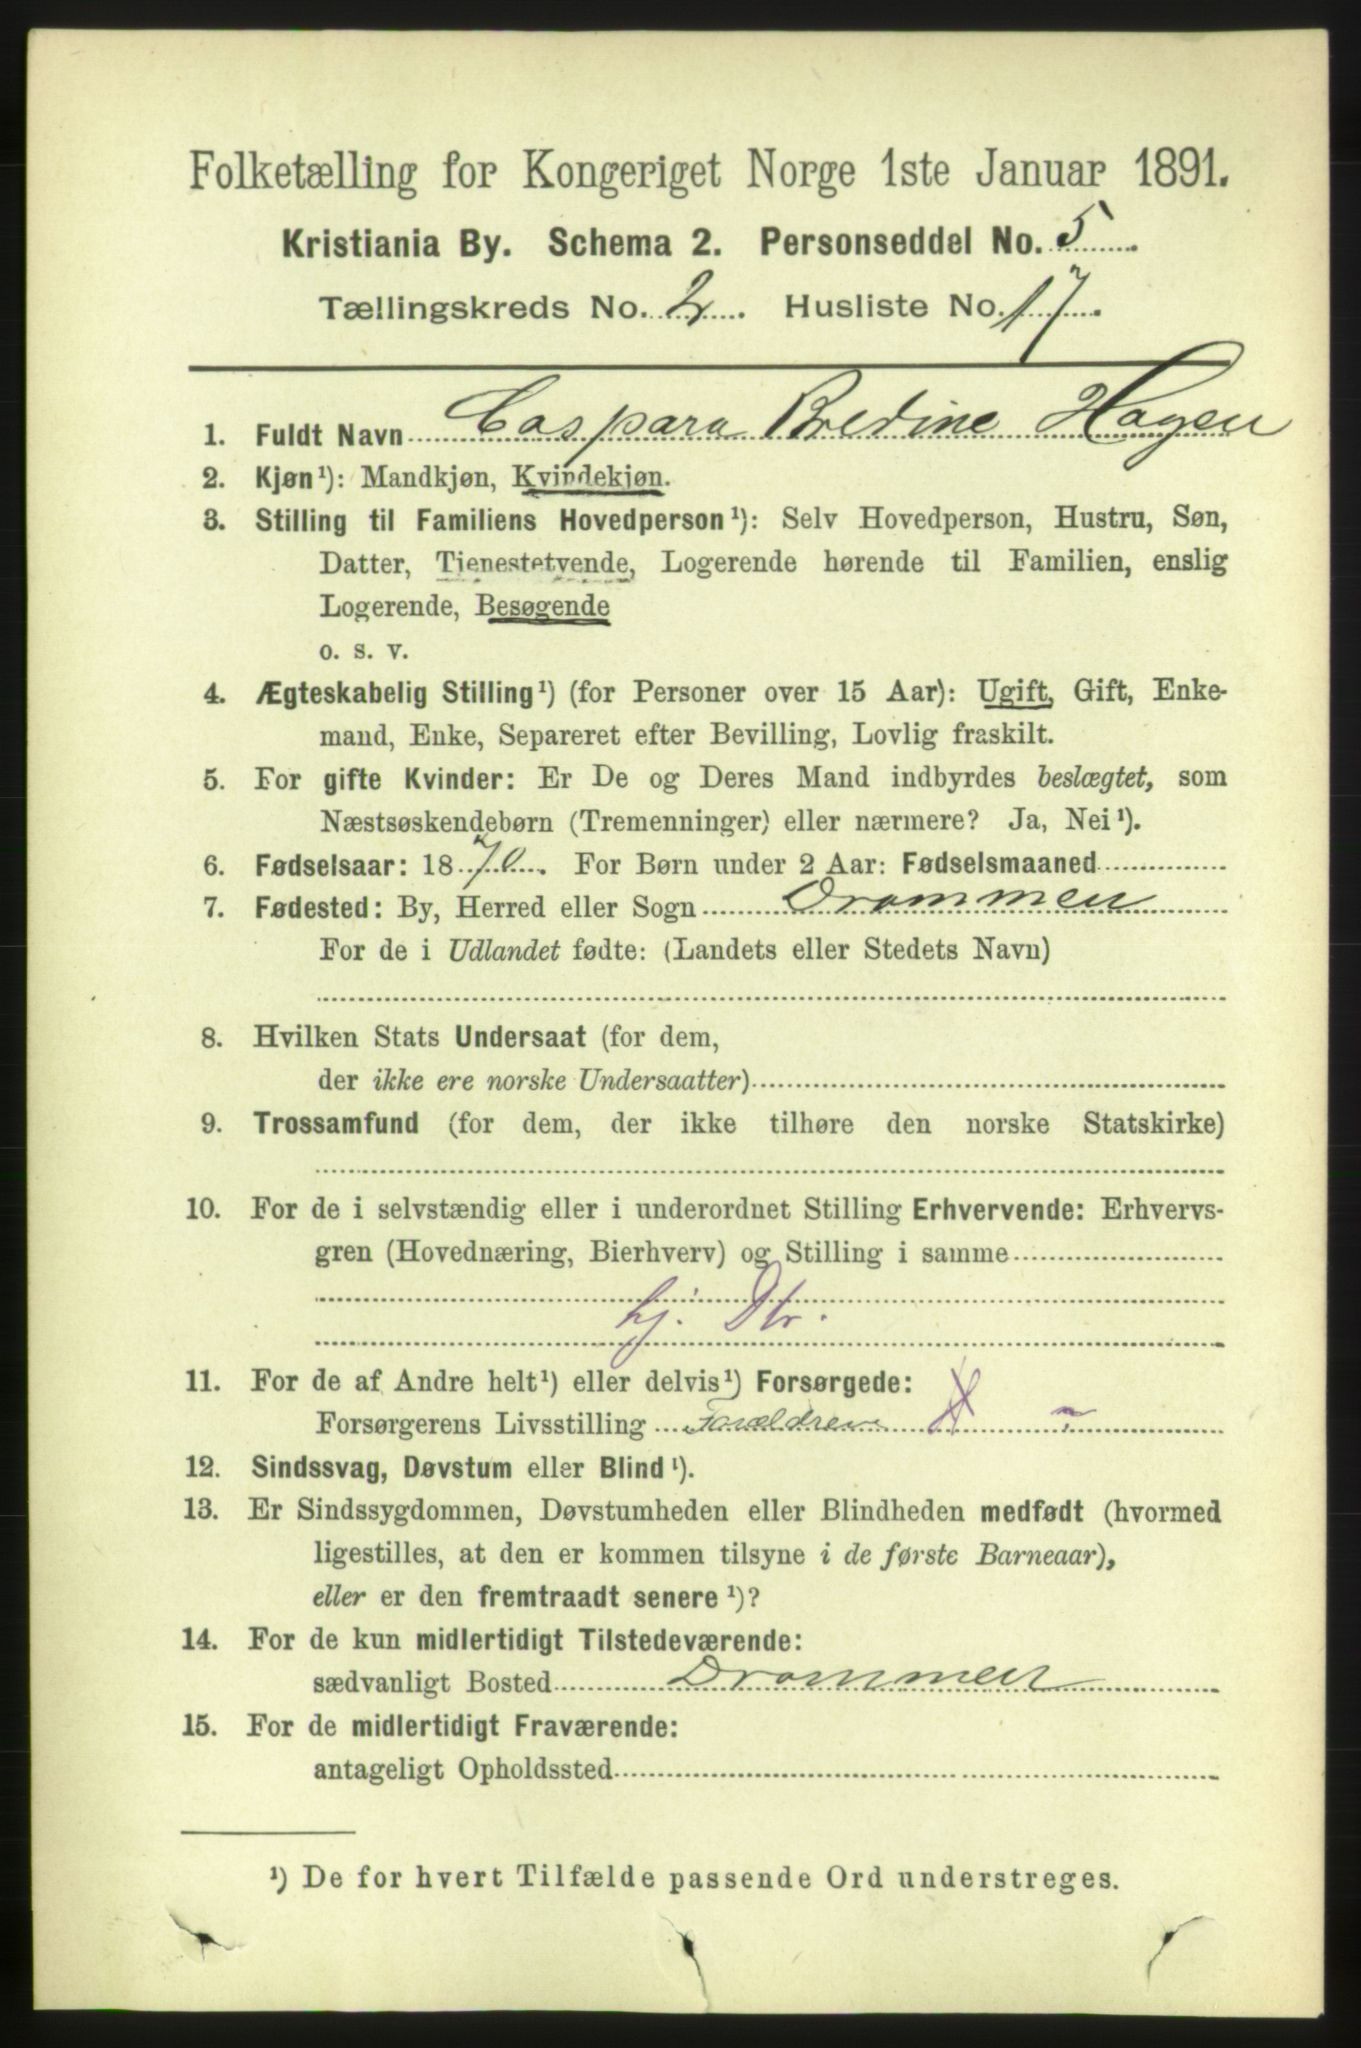 Folketælling for Kongeriget Norge 1ste Januar 1891.
Kristiania By. Schema 2. Personseddel No. 5.
Tællingskreds No. 2. Husliste No. 17.
1. Fuldt Navn Caspara Bredine Hagen
2. Kjøn¹): Mandkjøn, Kvindekjøn.
3. Stilling til Familiens Hovedperson¹): Selv Hovedperson, Hustru, Søn,
Datter, Tjenestetyende, Logerende hørende til Familien, enslig
Logerende, Besøgende
o. s. v.
4. Ægteskabelig Stilling¹) (for Personer over 15 Aar): Ugift, Gift, Enke-
mand, Enke, Separeret efter Bevilling, Lovlig fraskilt.
5. For gifte Kvinder: Er De og Deres Mand indbyrdes beslægtet, som
Næstsøskendebørn (Tremenninger) eller nærmere? Ja, Nei¹).
6. Fødselsaar: 1870. For Børn under 2 Aar: Fødselsmaaned
7. Fødested: By, Herred eller Sogn Drammen
For de i Udlandet fødte: (Landets eller Stedets Navn)
8. Hvilken Stats Undersaat (for dem,
der ikke ere norske Undersaatter)
9. Trossamfund (for dem, der ikke tilhøre den norske Statskirke)
10. For de i selvstændig eller i underordnet Stilling Erhvervende: Erhvervs-
gren (Hovednæring, Bierhverv) og Stilling i samme
hj. Dtr.
11. For de af Andre helt¹) eller delvis¹) Forsørgede:
Forsørgerens Livsstilling Forældrene
12. Sindssvag, Døvstum eller Blind¹).
13. Er Sindssygdommen, Døvstumheden eller Blindheden medfødt (hvormed
ligestilles, at den er kommen tilsyne i de første Barneaar),
eller er den fremtraadt senere¹)?
14. For de kun midlertidigt Tilstedeværende:
sædvanligt Bosted Drammen
15. For de midlertidigt Fraværende:
antageligt Opholdssted
¹) De for hvert Tilfælde passende Ord understreges.